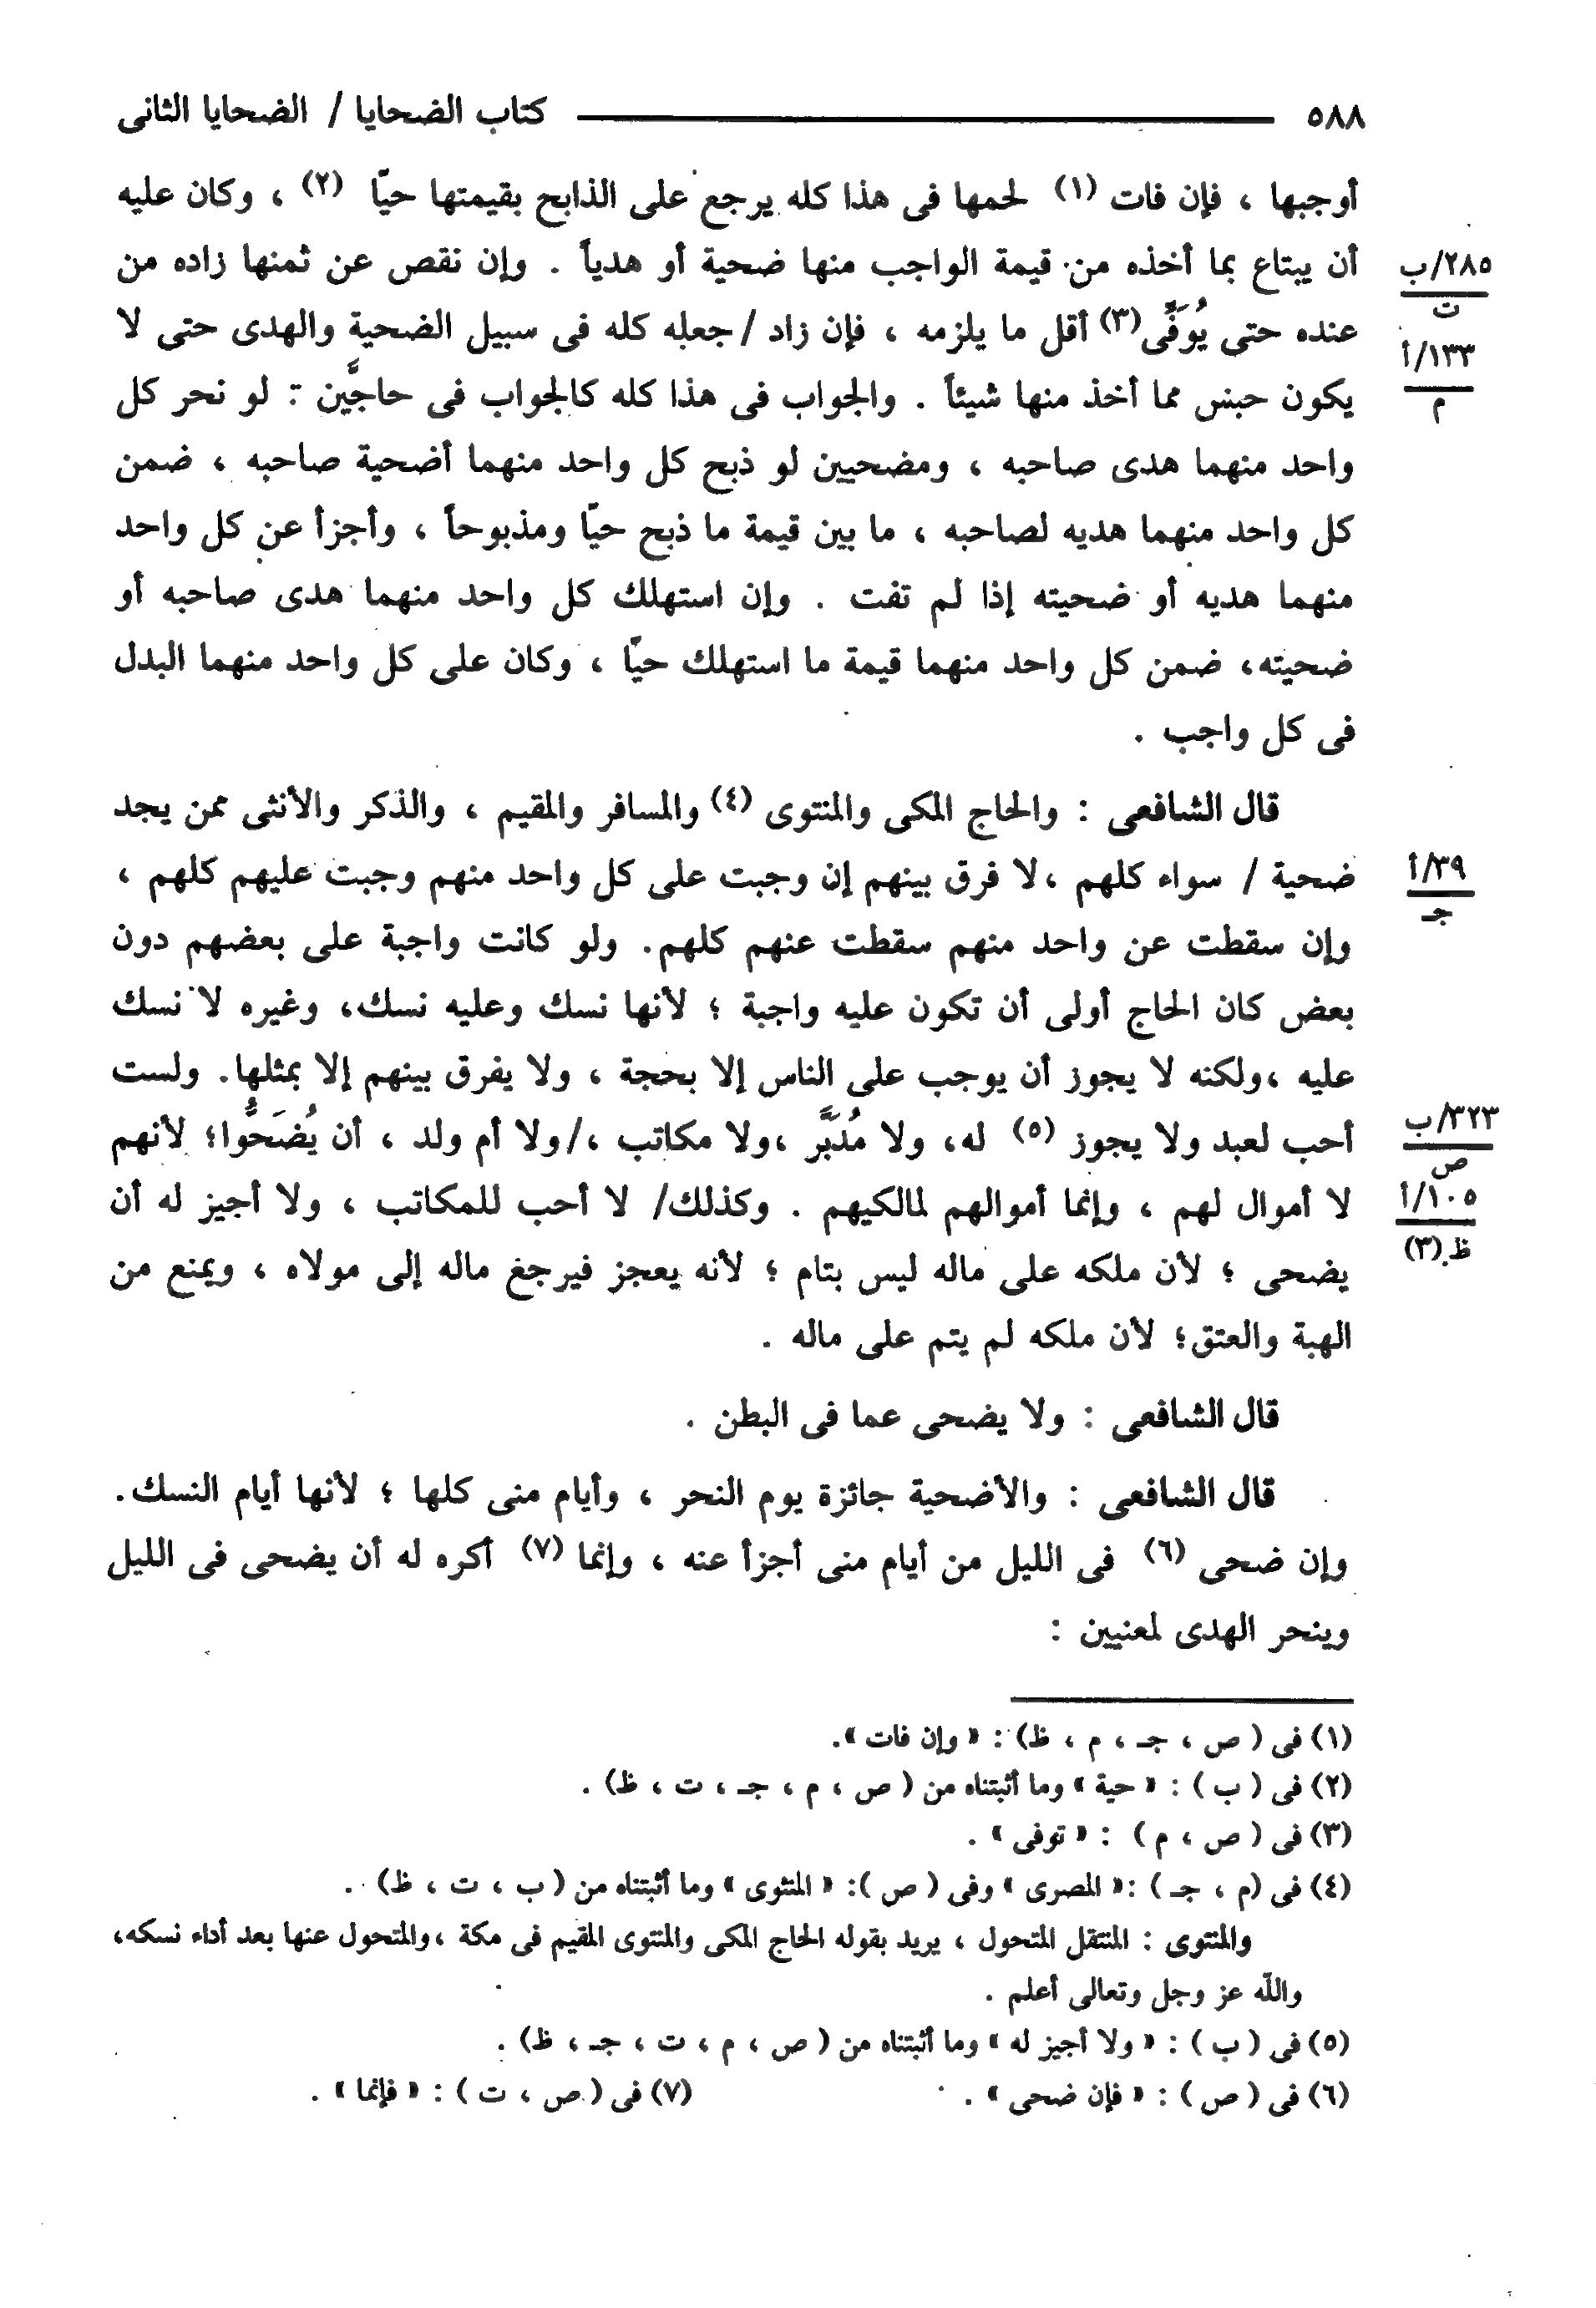 ٥٨٨ ــــــ كتاب الضحايا / الضحايا الثانى
أوجبها ، فإن فات (١) لحمها فى هذا كله يرجع على الذابح بقيمتها حيّا (٢) ، وكان عليه
أن يبتاع بما أخذه من قيمة الواجب منها ضحية أو هدياً . وإن نقص عن ثمنها زاده من
٢٨٥/ب
ت
عنده حتى يُوَفَّى(٣) أقل ما يلزمه ، فإن زاد /جعله كله فى سبيل الضحية والهدى حتى لا
١٣٣/أ
م
يكون حبس مما أخذ منها شيئاً . والجواب فى هذا كله كالجواب فى حاجَّين : لو نحر كل
واحد منهما هدى صاحبه ، ومضحيين لو ذبح كل واحد منهما أضحية صاحبه ، ضمن
كل واحد منهما هديه لصاحبه ، ما بين قيمة ما ذبح حيّا ومذبوحاً ، وأجزأ عن كل واحد
منهما هديه أو ضحيته إذا لم تفت . وإن استهلك كل واحد منهما هدى صاحبه أو
ضحيته، ضمن كل واحد منهما قيمة ما استهلك حيّا ، وكان على كل واحد منهما البدل
فى كل واجب .
قال الشافعى : والحاج المكى والمنتوى (٤) والمسافر والمقيم ، والذكر والأنثى ممن يجد
ضحية / سواء كلهم ،لا فرق بينهم إن وجبت على كل واحد منهم وجبت عليهم كلهم ،
٣٩/أ
جـ
وإن سقطت عن واحد منهم سقطت عنهم كلهم. ولو كانت واجبة على بعضهم دون
بعض كان الحاج أولى أن تكون عليه واجبة ؛ لأنها نسك وعليه نسك، وغيره لا نسك
عليه ،ولكنه لا يجوز أن يوجب على الناس إلا بحجة ، ولا يفرق بينهم إلا بمثلها. ولست
أحب لعبد ولا يجوز (٥) له، ولا مُدَبَّر ،ولا مكاتب ،/ولا أم ولد ، أن يُضَحُّوا؛ لأنهم
٣٢٣/ب
ص
لا أموال لهم ، وإنما أموالهم لمالكيهم . وكذلك/ لا أحب للمكاتب ، ولا أجيز له أن
١٠٥/أ
ظ(٣)
يضحى ؛ لأن ملكه على ماله ليس بتام ؛ لأنه يعجز فيرجع ماله إلى مولاه ، ويمنع من
الهبة والعتق؛ لأن ملكه لم يتم على ماله .
قال الشافعى : ولا يضحى عما فى البطن .
قال الشافعى : والأضحية جائزة يوم النحر ، وأيام منى كلها ؛ لأنها أيام النسك.
وإن ضحى (٦) فى الليل من أيام منى أجزأ عنه ، وإنما (٧) أكره له أن يضحى فى الليل
وينحر الهدى لمعنيين :
(١) فى ( ص ، جـ ، م ، ظ) : « وإن فات ».
(٢) فى ( ب ) : « حية » وما أثبتناه من ( ص ، م ، جـ ، ت ، ظ) .
(٣) فى ( ص ، م ) : « توفى » .
(٤) فى (م ، جـ ) :« المصرى » وفى ( ص ): « المنثوى » وما أثبتناه من ( ب ، ت ، ظ) .
والمنتوى : المنتقل المتحول ، يريد بقوله الحاج المكى والمنتوى المقيم فى مكة ،والمتحول عنها بعد أداء نسكه،
والله عز وجل وتعالى أعلم .
(٥) فى ( ب ) : « ولا أجيز له » وما أثبتناه من ( ص ، م ، ت ، جـ ، ظ) .
(٦) فى ( ص ) : « فإن ضحى » . (٧) فى ( ص ، ت ) : « فإنما » .